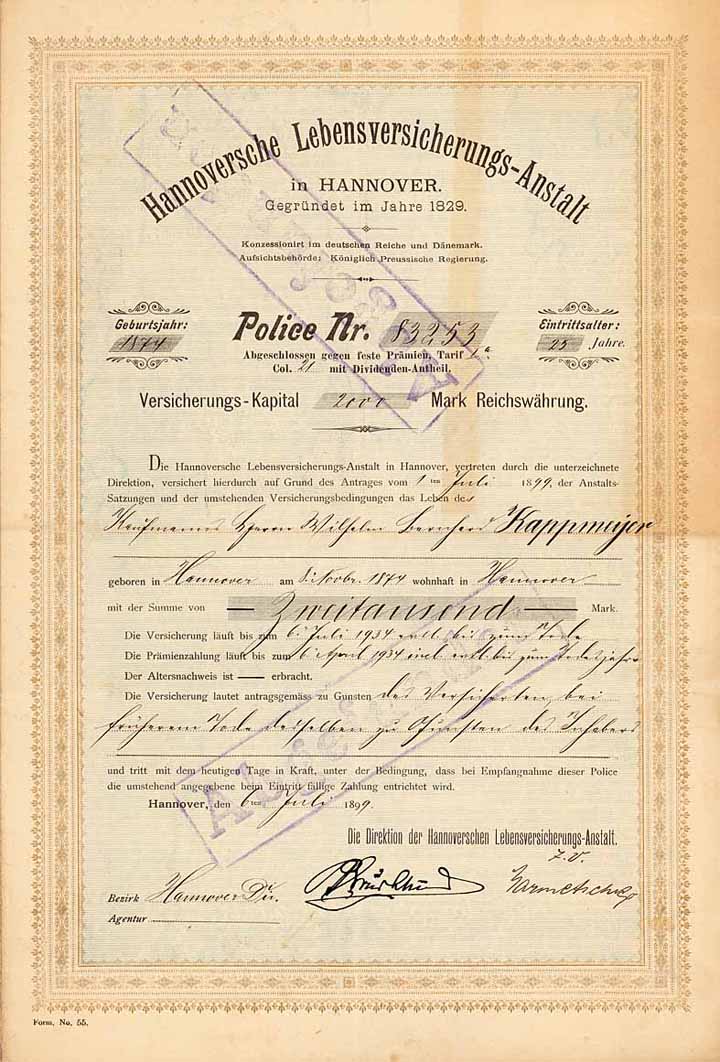 Hannoversche Lebensversicherungs-Anstalt
in HANNOVER.
Gegründet im Jahre 1829.
Konzessionirt im deutschen Reiche und Dänemark.
Aufsichtsbehörde: Königlich Preussische Regierung.
Geburtsjahr:
1874
Police Nr. 83253
Abgeschlossen gegen feste Prämien, Tarif
Col. 21 mit Dividenden-Antheil.
Eintrittsalter:
25 Jahre.
Versicherungs-Kapital 2000 Mark Reichswährung.
Die Hannoversche Lebensversicherungs-Anstalt in Hannover, vertreten durch die unterzeichnete
Direktion, versichert hierdurch auf Grund des Antrages vom 1ten Juli 1899, der Anstalts-
Satzungen und der umstehenden Versicherungsbedingungen das Leben des
Kaufmanns Herrn Wilhelm Bernhard Kappmeijer
geboren in Hannover am 8. Novbr. 1874 wohnhaft in Hannover
mit der Summe von — Zweitausend — Mark.
Die Versicherung läuft bis zum 6. Juli 1934 evtl. bis zum Tode
Die Prämienzahlung läuft bis zum 6. April 1934 incl. evtl. bis zum Todesjahr
Der Altersnachweis ist — erbracht.
Die Versicherung lautet antragsgemäss zu Gunsten des Versicherten, bei
früherem Tode desselben zu Gunsten des Inhabers
und tritt mit dem heutigen Tage in Kraft, unter der Bedingung, dass bei Empfangnahme dieser Police
die umstehend angegebene beim Eintritt fällige Zahlung entrichtet wird.
Hannover, den 6ten Juli 1899.
Die Direktion der Hannoverschen Lebensversicherungs-Anstalt.
Bezirk Hannover Dir.
Agentur
Form. No. 55.